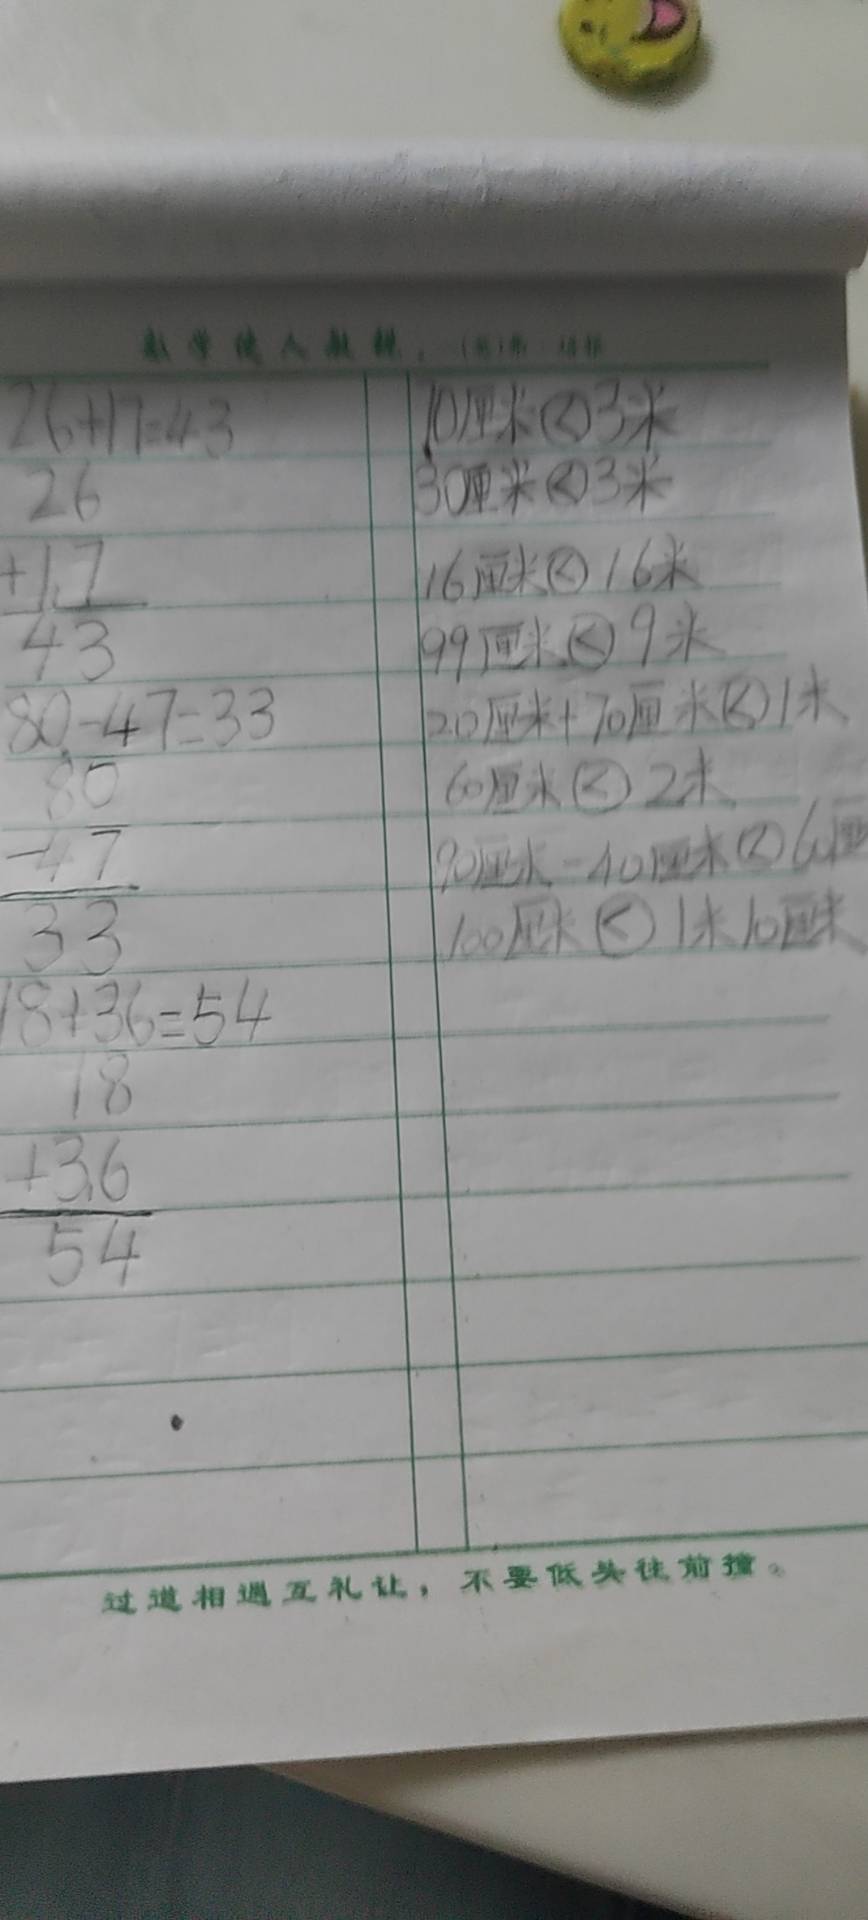 26+17=43
26
+17
43
80-47=33
80
-47
33
18+36=54
18
+36
54
10厘米<3米
30厘米<3米
16厘米<16米
99厘米<9米
20厘米+70厘米<1米
60厘米<2米
90厘米-40厘米<60厘
100厘米<1米10厘米
过道相遇互礼让，不要低头往前撞。